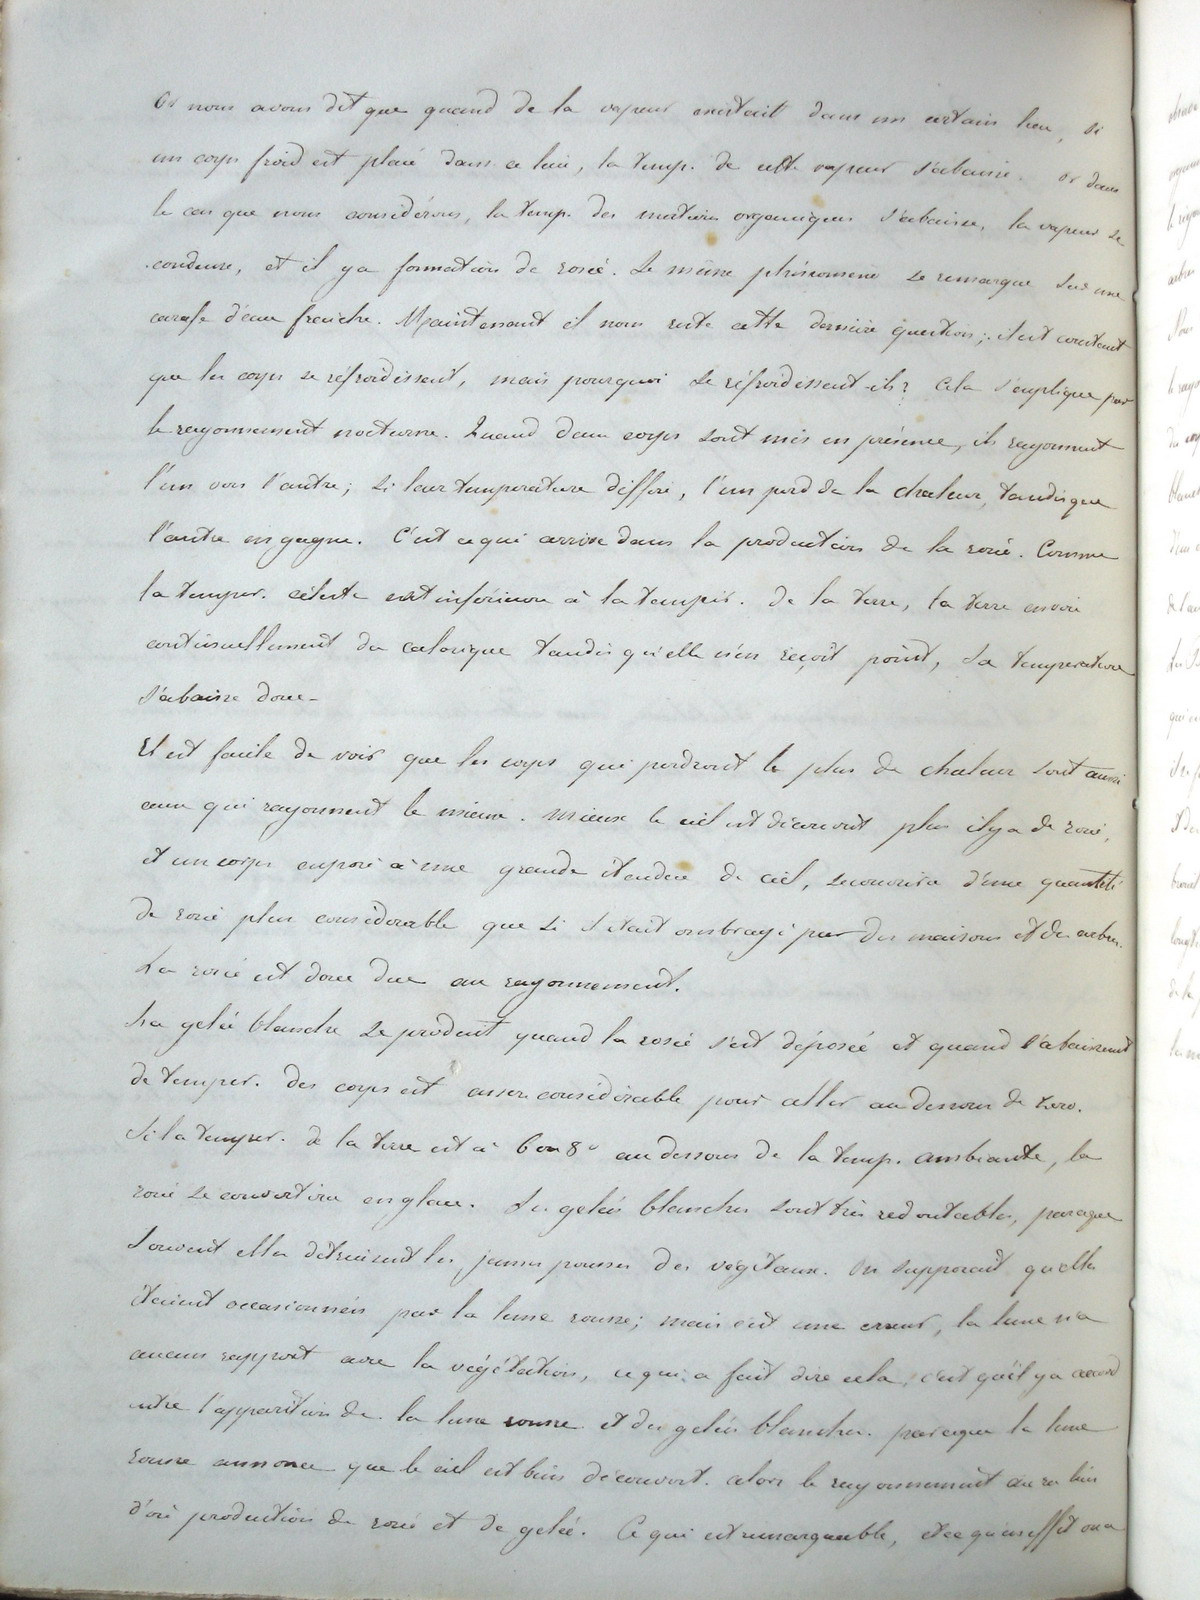 Or nous avons dit que quand de la vapeur existait dans un certain lieu, si
un corps froid est placé dans ce lieu, la temp. de cette vapeur s'abaisse. or dans
le cas que nous considérons, la temp. des matières organiques s'abaisse, la vapeur se
condense, et il y a formation de rosée. Le même phénomène se remarque sur une
carafe d'eau fraîche. Maintenant il nous reste cette dernière question; il est constant
que les corps se réfroidissent, mais pourquoi se réfroidissent-ils? Cela s'explique par
le rayonnement nocturne. Quand deux corps sont mis en présence, ils rayonnent
l'un vers l'autre; si leur température diffère, l'un perd de la chaleur, tandisque
l'autre en gagne. C'est ce qui arrive dans la production de la rosée. Comme
la temper. céleste est inférieure à la temper. de la terre, la terre envoie
continuellement du calorique tandis qu'elle n'en reçoit point, sa température
s'abaisse donc-
Il est facile de voir que les corps qui perdront le plus de chaleur sont aussi
ceux qui rayonnent le mieux. Mieux le ciel est découvert plus il y a de rosée,
et un corps exposé à une grande étendue de ciel, se couvrira d'une quantité
de rosée plus considérable que si il était ombragé par des maisons et des arbres.
La rosée est donc due au rayonnement.
La gelée blanche se produit quand la rosée s'est déposée et quand l'abaissement
de temper. des corps est assez considérable pour aller au dessous de zero.
Si la temper. de la terre est à 6 ou 8° au dessous de la temp. ambiante, la
rosée se convertira en glace. Les gelées blanches sont très redoutables, parceque
souvent elles détruisent les jeunes pousses des végétaux. On supposait qu'elles
étaient occasionnées par la lune rousse; mais c'est une erreur, la lune n'a
aucun rapport avec la végétation, ce qui a fait dire cela, c'est qu'il y a accord
entre l'apparition de la lune rousse et des gelées blanches. parceque la lune
rousse annonce que le ciel est bien découvert. alors le rayonnement aura lieu
d'où production de rosée et de gelée. Ce qui est remarquable, et ce qu'en effet on a